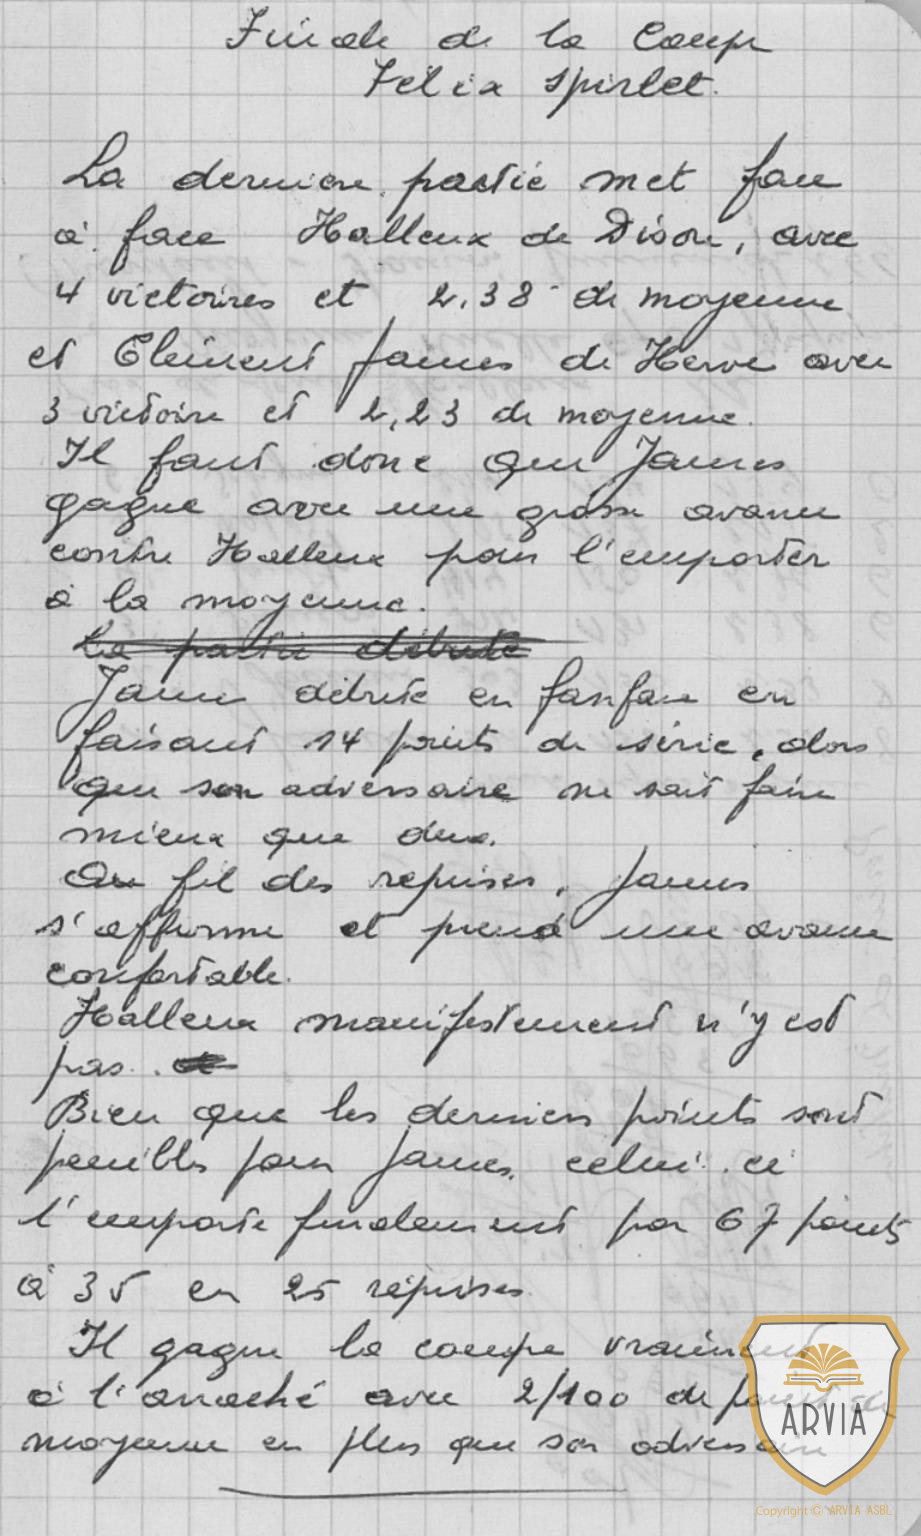 Finale de la Coupe
Félix Spirlet.
La dernière partie met face
à face Halleux de Dison, avec
4 victoires et 2,38 de moyenne
et Clément James de Herve avec
3 victoire et 2,23 de moyenne.
Il faut donc que James
gagne avec une grosse avance
contre Halleux pour l'emporter
à la moyenne.
La partie débute
James débute en fanfare en
faisant 14 points de série, alors
que son adversaire ne sait faire
mieux que deux.
Au fil des reprises, James
s'affirme et prend une avance
confortable.
Halleux manifestement n'y est
pas.
Bien que les derniers points sont
penibles pour James, celui-ci
l'emporte finalement par 67 points
à 35 en 25 reprises
Il gagne la coupe vraiment
à l'arraché avec 2/100 de point de
moyenne en plus que son adversaire
ARVIA
Copyright © ARVIA ASBL